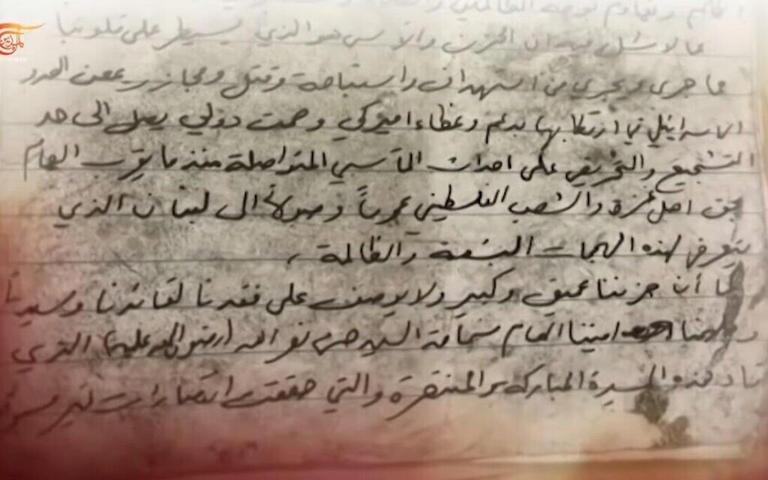 مما لا شك فيه ان الحزن والأسى هو الذي يسيطر على قلوبنا
ما جرى ويجري من استهداف واستباحة وقتل ومجازر يمعن العدو
الاسرائيلي في ارتكابها بدعم وغطاء اميركي وصمت دولي يصل الى حد
التشجيع والتحريض على احداث المآسي المتواصلة منذ ما يقرب العام
بحق اهل غزة والشعب الفلسطيني عموماً وصولاً الى لبنان الذي
يتعرض لهذه الهجمات البشعة والظالمة ،
كما أن حزننا عميق وكبير ولا يوصف على فقدنا لقائدنا وسيدنا
اميننا العام سماحة السيد حسن نصر الله رضوان الله عليه الذي
قاد هذه المسيرة المباركة والمنتصرة والتي حققت انتصارات